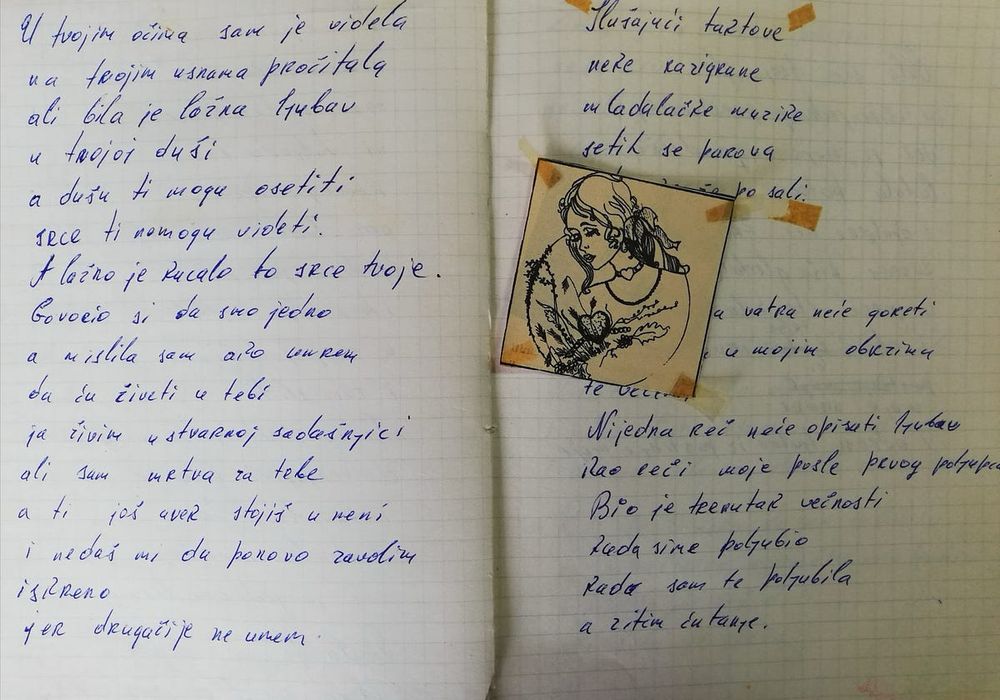 U tvojim očima sam je videla
na tvojim usnama pročitala
ali bila je lažna ljubav
u tvojoj duši
a dušu ti mogu osetiti
srce ti nemogu videti.
A lažno je kucalo to srce tvoje.
Govorio si da smo jedno
a mislila sam ako umrem
da ću živeti u tebi
ja živim u stvarnoj sadašnjici
ali sam mrtva za tebe
a ti još uvek stojiš u meni
i nedaš mi da ponovo zavolim
iskreno
jer drugačije ne umem.
Slušajući taktove
neke razigrane
mladalačke muzike
setih se parova
po sali.
a vatra neće goreti
u mojim obrzima
te
Nijedna reč neće opisati ljubav
Kao reči moje posle prvog poljupca
Bio je trenutak večnosti
kada si me poljubio
kada sam te poljubila
a zatim ćutanje.